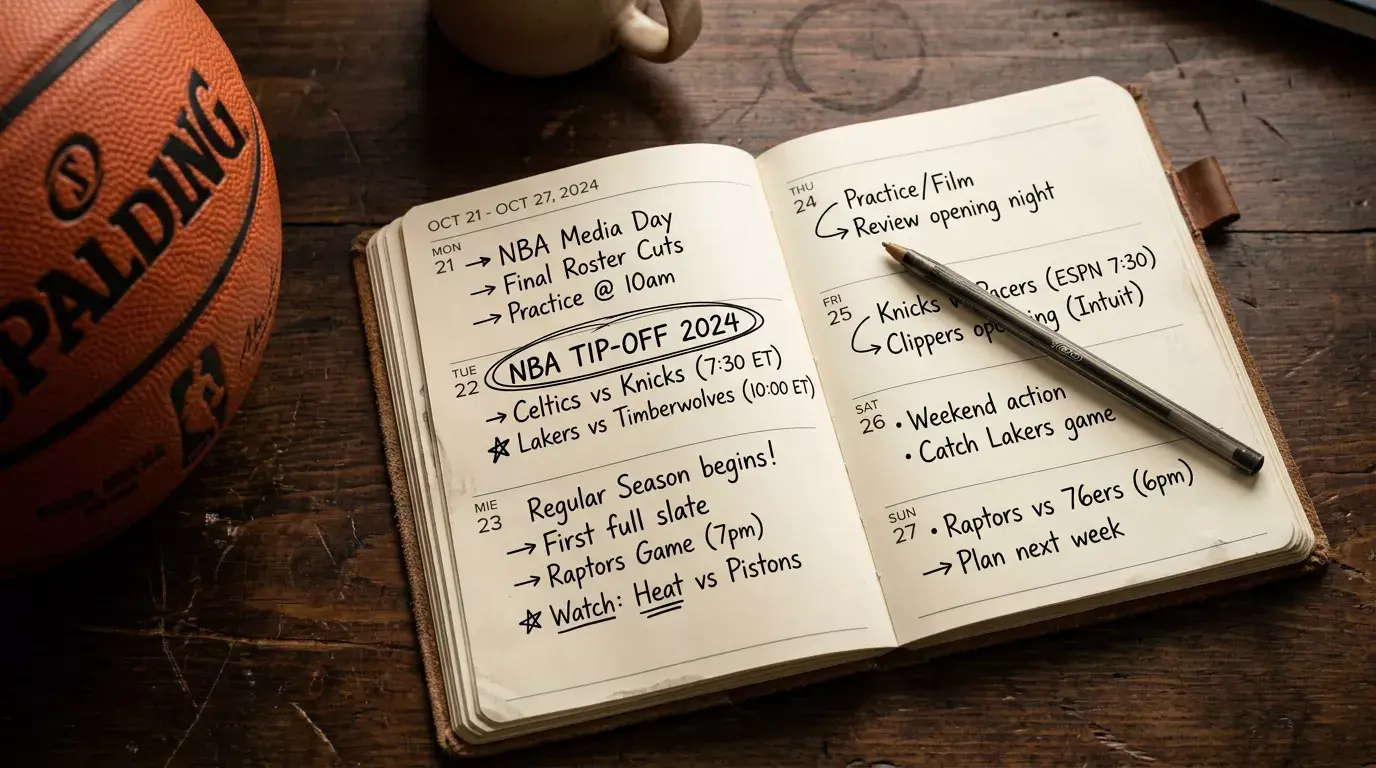 SPALDING
OCT 21 - OCT 27, 2024
MON
21
→ NBA Media Day
→ Final Roster Cuts
→ Practice @ 10am
TUE
22
NBA TIP-OFF 2024
→ Celtics vs Knicks (7:30 ET)
☆ Lakers vs Timberwolves (10:00 ET)
MIE
23
Regular Season begins!
→ First full slate
→ Raptors Game (7pm)
☆ Watch: Heat vs Pistons
THU
24
Practice/Film
→ Review opening night
FRI
25
Knicks Pacers (ESPN 7:30)
→ Clippers (Intuit)
SAT
26
• Weekend action
• Catch Lakers game
SUN
27
• Raptors vs 76ers (6pm)
→ Plan next week